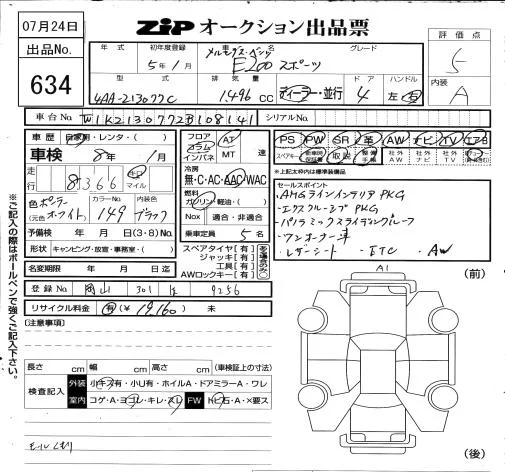 07月24日
ZIP オークション出品票
出品No.
634
年式 初年度登録 車名 グレード
5年1月 メルセデス・ベンツ E200 スポーツ
型式 排気量 ドア ハンドル
4AA-213077C 1496 cc ディーラー・並行 4 左 右
評価点
5
内装
A
車台No W1K2130772B108141 シリアルNo.
車歴 自家用・レンタ・( )
車検 8年1月
走行 8366 km マイル
色 ポーラー
(元色 ホワイト) カラーNo. 149 内装色 ブラック
予備検 年 月 日(3・8)No.
形状 キャンピング・放宣・事務室・( )
名変期限 年 月 日迄
フロア コラム インパネ
AT
MT 速
冷房
無・C・AC・AAC・WAC
燃料
ガソリン・軽油・( )
Nox 適合・非適合
乗車定員 5名
スペアタイヤ[有]
ジャッキ[有]
工具[有]
AWロックキー[有]
PS PW SR 革 AW ナビ TV エアB
スペアキー 取説
★上記太枠は標準装備品
セールスポイント
・AMGラインインテリアPKG
・エクスクルーシブPKG
・パノラミックスライディングルーフ
・ワンオーナー車
・レザーシート ・ETC ・AW
登録No. 岡山 301 9256
リサイクル料金 有(¥19,160) 未
【注意事項】
※ご記入の際はボールペンで強くご記入下さい。
長さ cm 幅 cm 高さ cm (車検証上の寸法)
検査記入 外装 小キズ有・小U有・ホイルA・ドアミラーA・ワレ
室内 コゲ・A・ヨゴレ・キレ・スレ FW トビ石・A・×要ス
モールくもり
A1
(前)
(後)